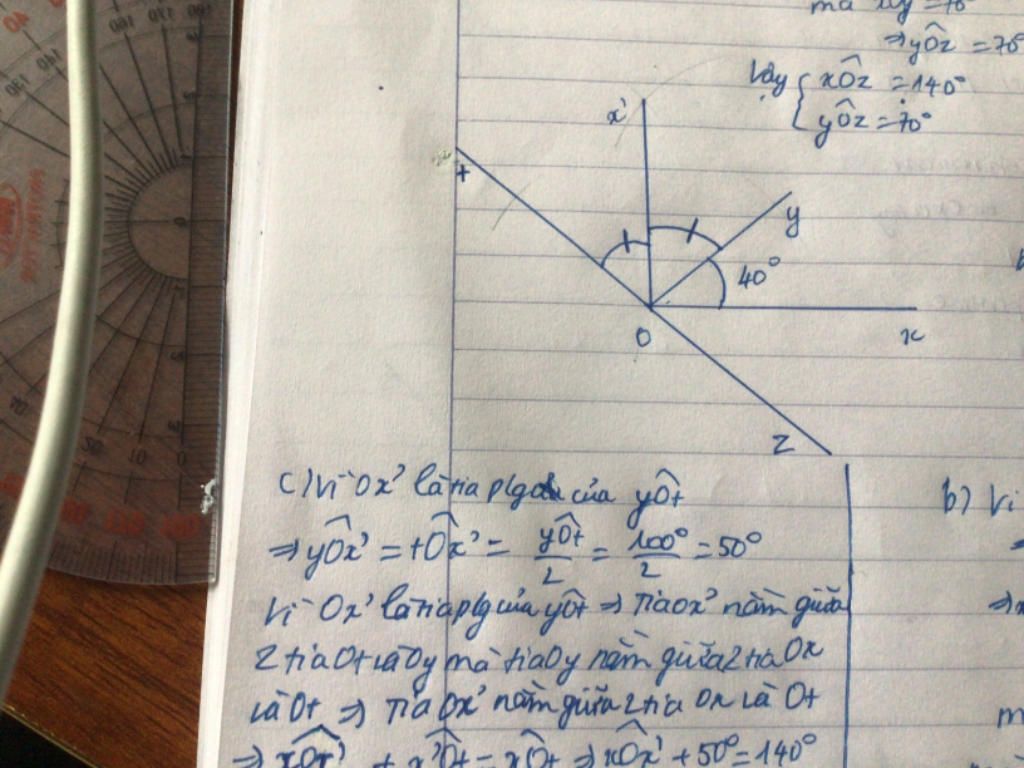 ⇒ yÔz = 70°
Vậy { xÔz = 140°
yÔz = 70°
x'
t
y
40°
O
x
z
c) Vì Ox' là tia p/g của yÔt
⇒ yÔx' = tÔx' = yÔt/2 = 100°/2 = 50°
Vì Ox' là tia p/g của yÔt ⇒ Tia Ox' nằm giữa
2 tia Ot và Oy mà tia Oy nằm giữa 2 tia Ox
và Ot ⇒ Tia Ox' nằm giữa 2 tia Ox và Ot
⇒ xÔx' + x'Ôt = xÔt ⇒ xÔx' + 50° = 140°
b) Vì